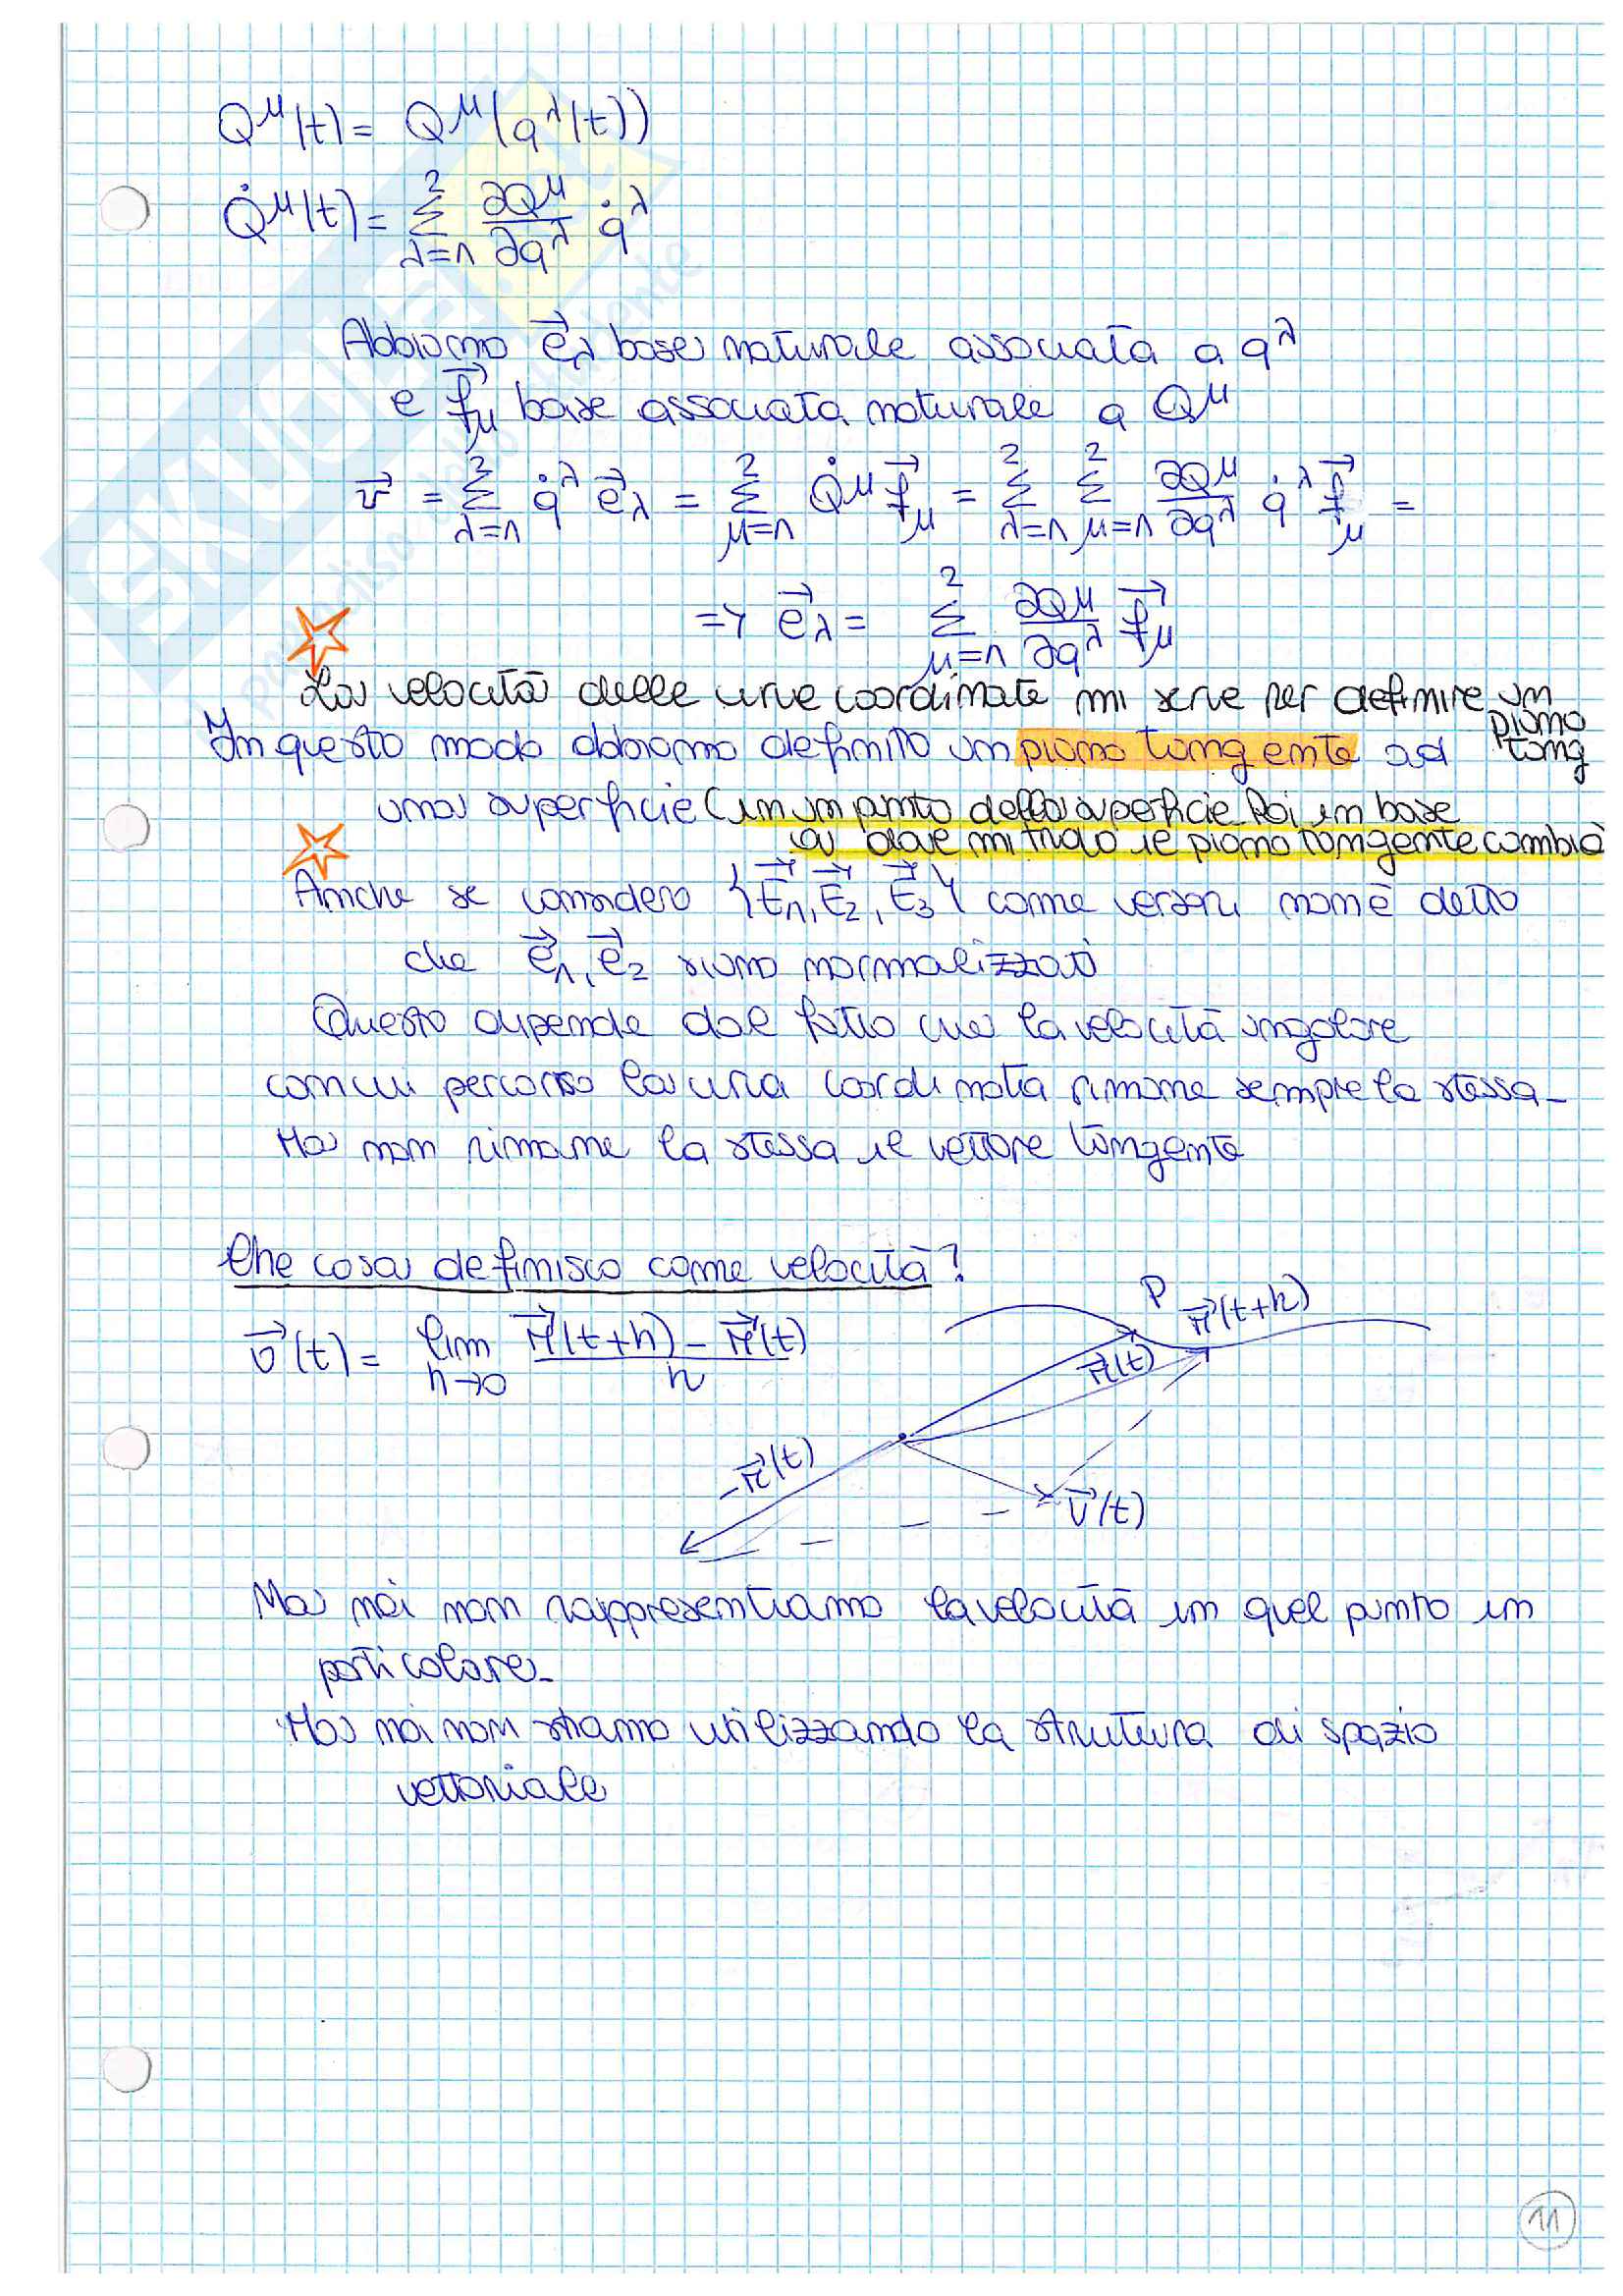 Q^μ(t) = Q^μ(q^λ(t))
Q̇^μ(t) = Σ_{λ=1}^{2} ∂Q^μ/∂q^λ q̇^λ
Abbiamo e⃗_λ base naturale associata a q^λ
e f⃗_μ base associata naturale a Q^μ
v⃗ = Σ_{λ=1}^{2} q̇^λ e⃗_λ = Σ_{μ=1}^{2} Q̇^μ f⃗_μ = Σ_{λ=1}^{2} Σ_{μ=1}^{2} ∂Q^μ/∂q^λ q̇^λ f⃗_μ =
=> e⃗_λ = Σ_{μ=1}^{2} ∂Q^μ/∂q^λ f⃗_μ
La velocità delle curve coordinate mi serve per definire un piano tang
In questo modo abbiamo definito un piano tangente ad
una superficie (in un punto della superficie. Poi in base
a dove mi trovo il piano tangente cambia
Anche se considero {E⃗1, E⃗2, E⃗3} come versori non è detto
che e⃗1, e⃗2 siano normalizzati
Questo dipende dal fatto che la velocità angolare
con cui percorro la curva coordinata rimane sempre la stessa_
Ma non rimane la stessa il vettore tangente
Che cosa definisco come velocità?
v⃗(t) = lim_{h→0} r⃗(t+h) - r⃗(t) / h
P
r⃗(t+h)
r⃗(t)
-r⃗(t)
v⃗(t)
Ma noi non rappresentiamo la velocità in quel punto in
particolare_
Ma noi non stiamo utilizzando la struttura di spazio
vettoriale
11
SKUOLA
paradiso dello studente